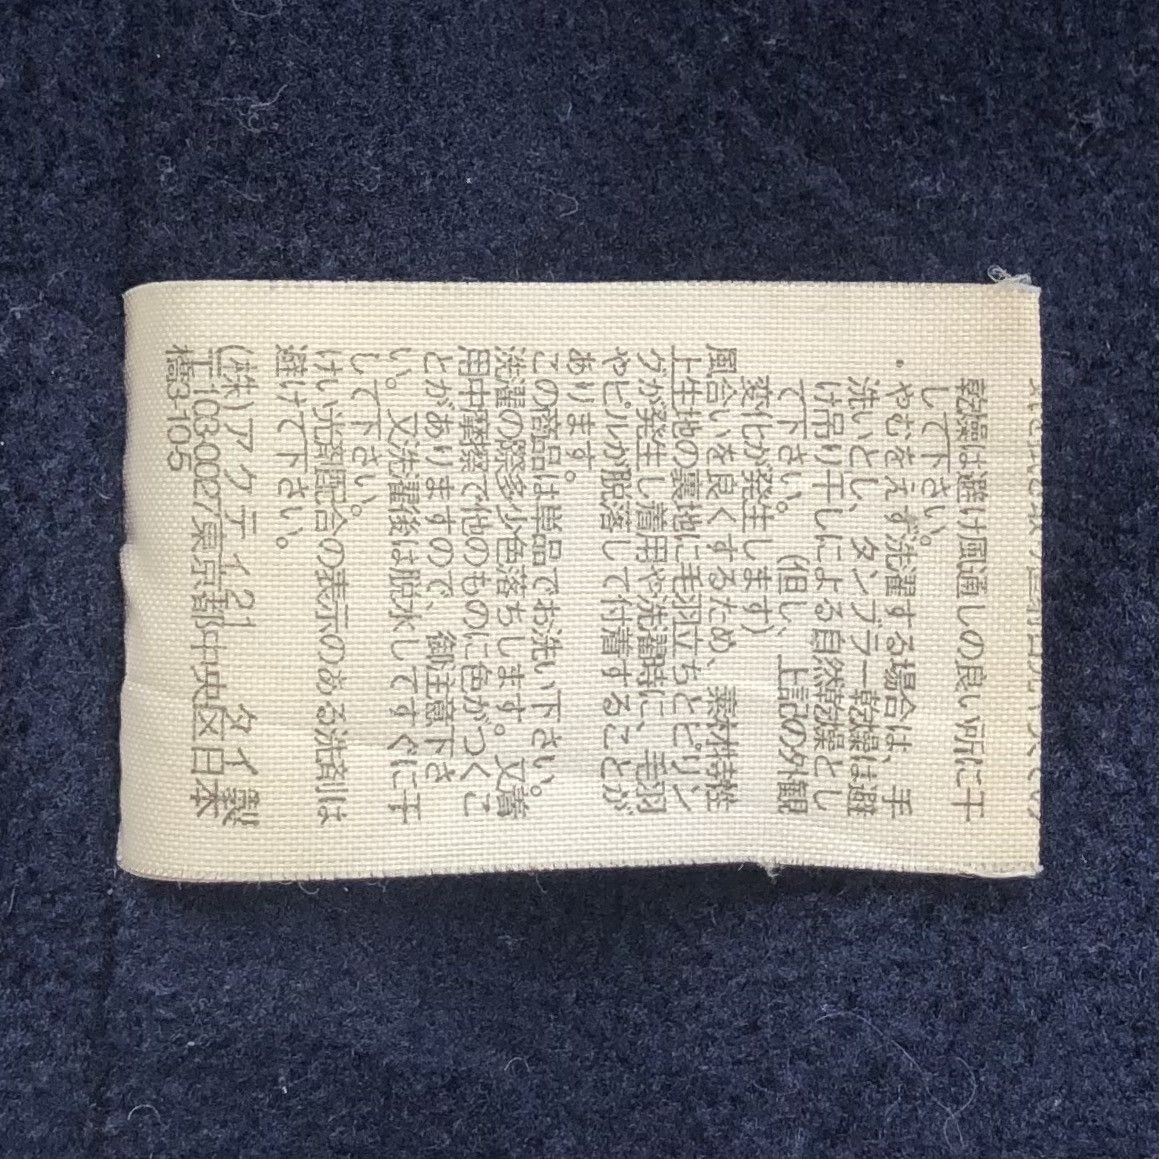 乾燥は避け風通しの良い所に干
して下さい。
・やむをえず洗濯する場合は、手
洗いとし、タンブラー乾燥は避
け吊り干しによる自然乾燥とし
て下さい。（但し、上記の外観
変化が発生します）
風合いを良くするため、素材特性
上生地の裏地に毛羽立ちとピリン
グが発生し着用や洗濯時に、毛羽
やピルが脱落して付着することが
あります。
この商品は単品でお洗い下さい。
洗濯の際多少色落ちします。又着
用中摩擦で他のものに色がつくこ
とがありますので、御注意下さ
い。又洗濯後は脱水してすぐに干
して下さい。
けい光増白剤配合の表示のある洗剤は
避けて下さい。
(株)アクティ21 タイ製
〒103-0027東京都中央区日本
橋3-10-5